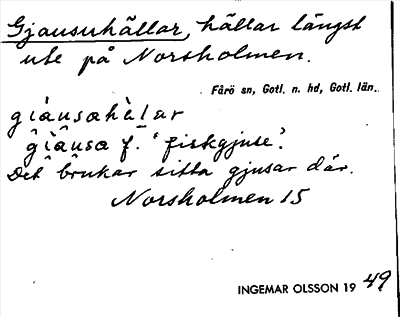 Gjausuhällar, hällar längst
ute på Norsholmen.
Fårö sn, Gotl. n. hd, Gotl. län.
giàusahàlar
giàusa f. 'fiskgjuse'.
Det brukar sitta gjusar där.
Norsholmen 15
INGEMAR OLSSON 19 49